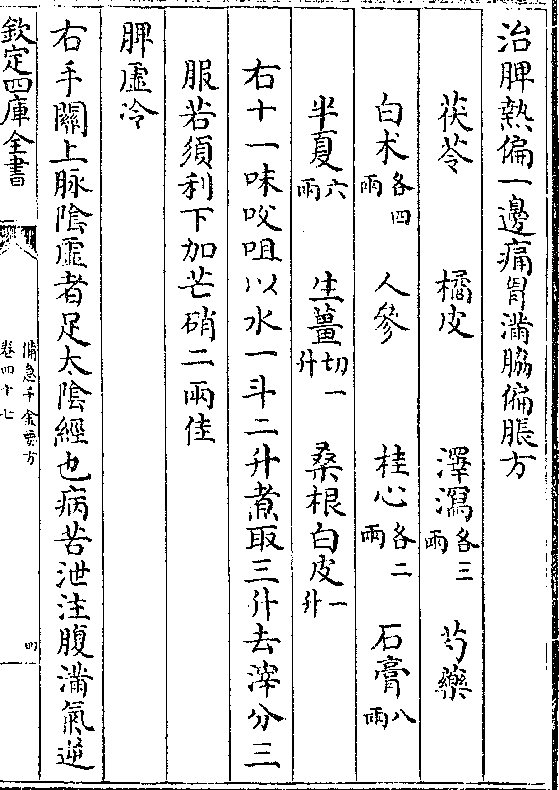 治脾熱偏一邊痛胷滿脇偏脹方
茯苓　橘皮　澤瀉各三兩　芍藥
白术各四兩　人參　桂心各二兩　石膏八兩
半夏六兩　生薑切一升　桑根白皮一升
右十一味㕮咀以水一斗二升煮取三升去滓分三
服若須利下加芒硝二兩佳
脾虛冷
右手關上脉陰虛者足太陰經也病苦泄注腹滿氣逆
欽定四庫全書
備急千金要方
卷四十七
四